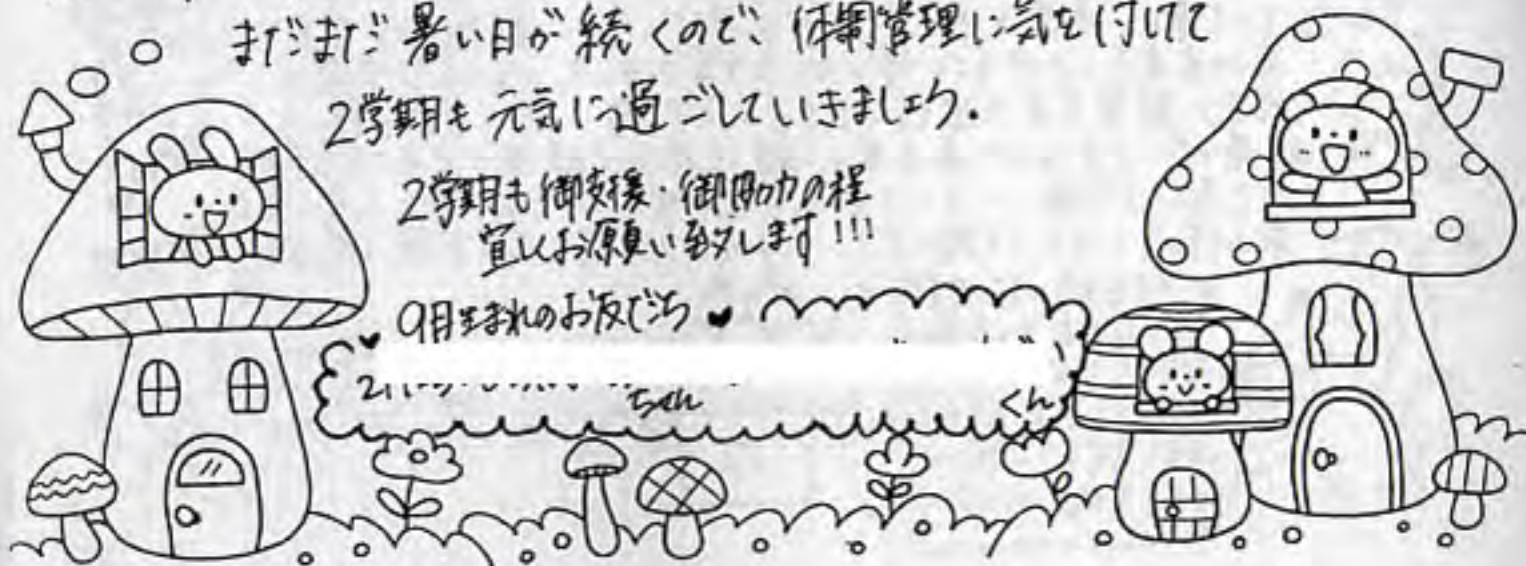 まだまだ暑い日が続くので、体調管理に気を付けて
2学期も元気に過ごしていきましょう.
2学期も御支援・御協力の程
宜しくお願い致します!!!
♥ 9月生まれのお友だち ♥
ちゃん
くん